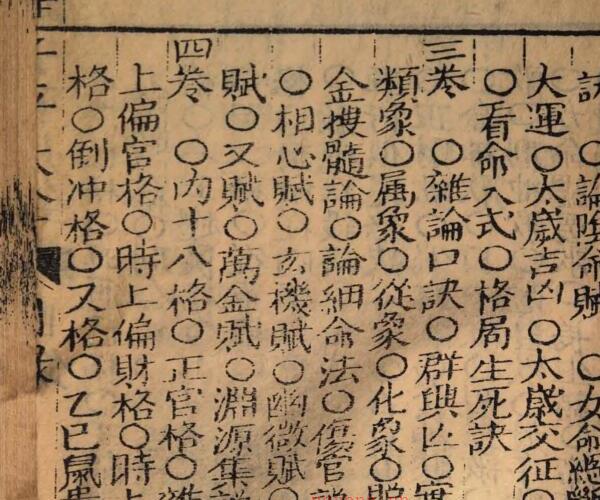 訣 ○論陰命賦 ○女命總
大運○太歲吉凶○太歲交征
○看命入式○格局生死訣
三巻 ○雜論口訣○群興凶○寅
類象○属象○從象○化象○照
金摟髓論○論細命法○傷官
○相心賦○玄機賦○幽微賦○
賦○又賦○萬金賦○淵源集
四巻 ○内十八格○正官格○雜
上偏官格○時上偏財格○時上
格○倒冲格○又格○乙巳鼠貴
子平大全 目録